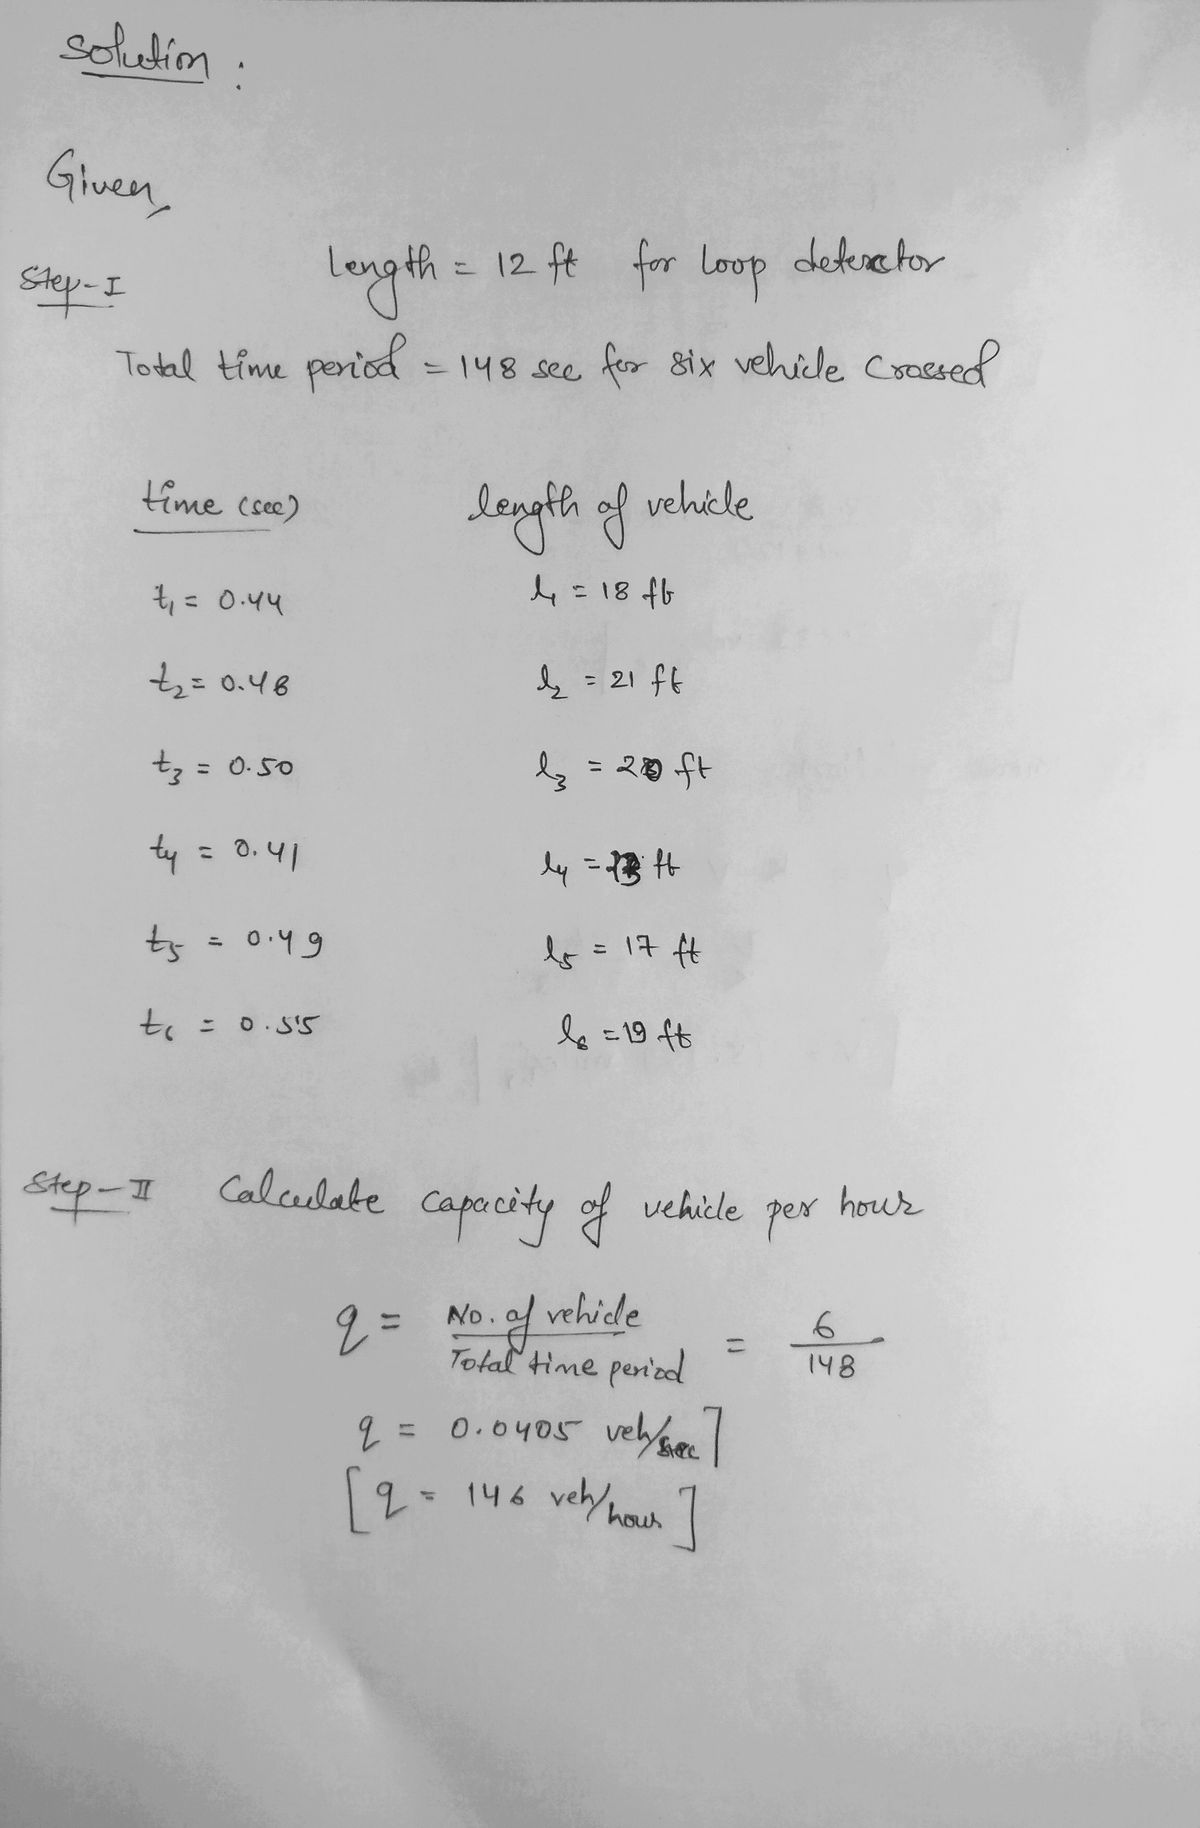 Solution :
Given,
Step-I
Length = 12 ft for loop detector
Total time period = 148 sec for six vehicle Crossed
time (sec) length of vehicle
t₁ = 0.44 l₁ = 18 ft
t₂ = 0.48 l₂ = 21 ft
t₃ = 0.50 l₃ = 20 ft
t₄ = 0.41 l₄ = ft
t₅ = 0.49 l₅ = 17 ft
t₆ = 0.55 l₆ = 19 ft
Step-II Calculate capacity of vehicle per hour
q = No. of vehicle / Total time period = 6 / 148
q = 0.0405 veh/sec]
[q = 146 veh/hour]